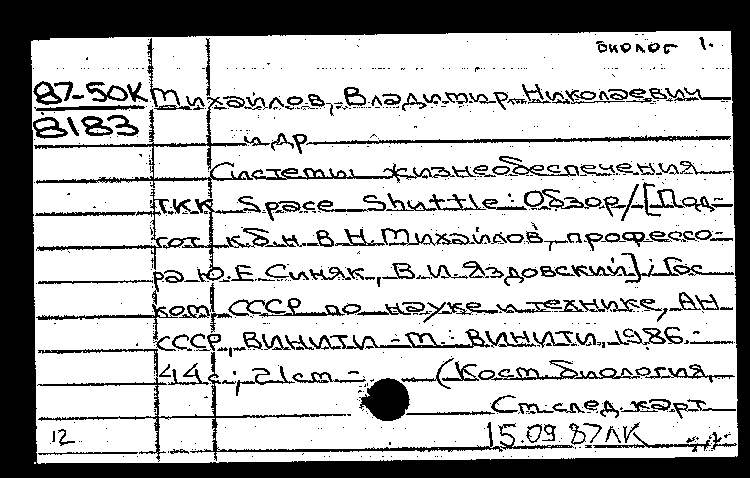 Биолог 1.
87-50К Михайлов, Владимир Николаевич
8183
и др
Системы жизнеобеспечения
ТКК Space Shuttle: Обзор/[Под-
гот. к.б.н. В.Н. Михайлов, профессо-
ра Ю.Е. Синяк, В.И. Яздовский]; Гос
ком СССР по науке и технике, АН
СССР, ВИНИТИ - М.: ВИНИТИ, 1986.-
44 с; 21 см. - (Косм. биология,
См. след. карт
12 15.09.87 ЛК